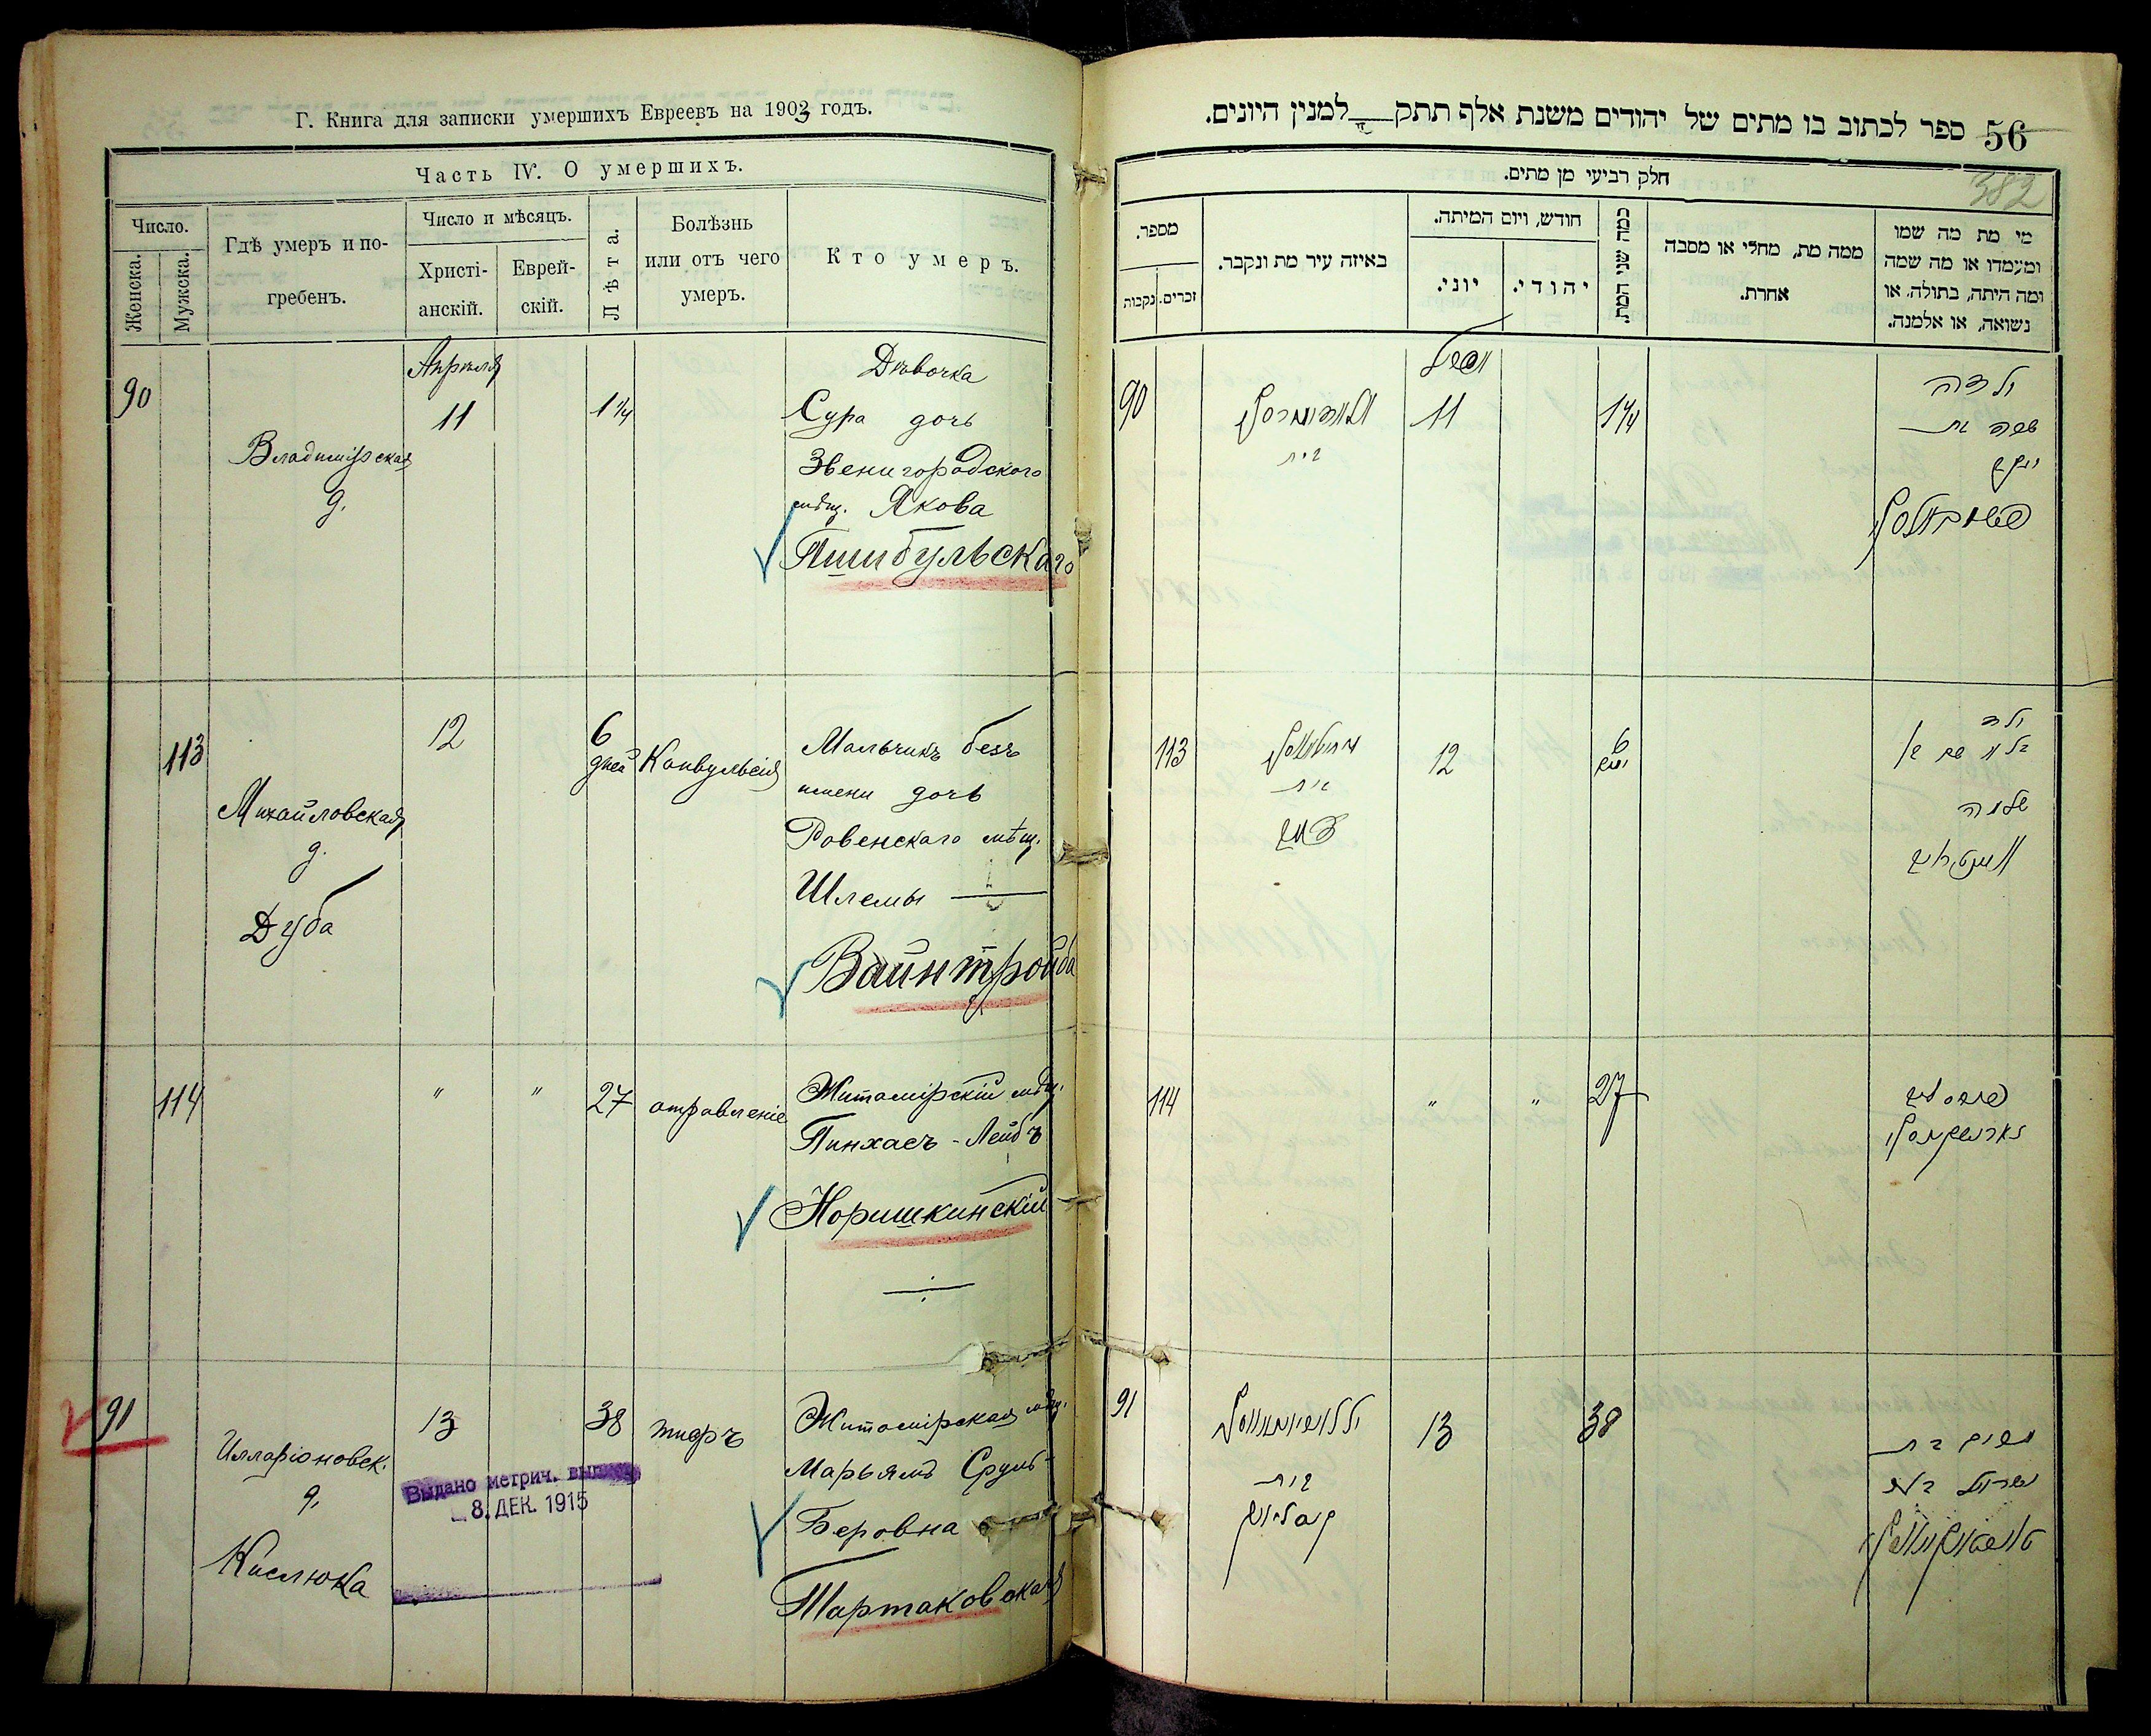 Г. Книга для записки умершихъ Евреевъ на 1903 годъ.
Часть IV. О умершихъ.
Число.
Женска.
Мужска.
Гдѣ умеръ и по-
гребенъ.
Число и мѣсяцъ.
Христі-
анскій.
Еврей-
скій.
Лѣта.
Болѣзнь
или отъ чего
умеръ.
Кто умеръ.
90
Владимірская
д.
Апрѣля
11
1 1/4
Дѣвочка
Сура дочь
Звенигородскаго
мѣщ. Якова
Пшибульскаго
113
Михайловская
д.
Дуба
12
6
дней
Конвульсія
Мальчикъ безъ
имени дочь
Ровенскаго мѣщ.
Шлемы
Вайнтройба
114
"
"
27
отравленіе
Житомірскій мѣщ.
Пинхасъ-Лейбъ
Норишкинскій
91
Илларіоновск.
д.
Кислюка
13
38
тифъ
Житомірская мѣщ.
Марьямъ Сруль-
Беровна
Тартаковская
Выдано метрич. вып
8. ДЕК. 1915
56
ספר לכתוב בו מתים של יהודים משנת אלף תתק למנין היונים.
382
חלק רביעי מן מתים.
מספר.
נקבות
זכרים.
באיזה עיר מת ונקבר.
חודש, ויום המיתה.
יוני.
יהודי.
כמה שני המת.
ממה מת, מחלי או מסבה
אחרת.
מי מת מה שמו
ומעמדו או מה שמה
ומה היתה, בתולה, או
נשואה, או אלמנה.
90
11
1 1/4
ילדה
שרה בת
יעקב
113
בית
12
6
ילד
שלמה
114
"
"
27
91
בית
13
38
מרים בת
ישראל בער